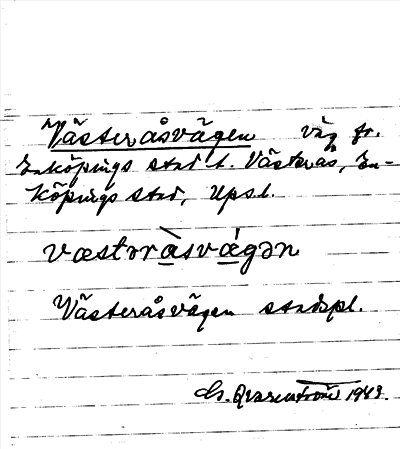 Västeråsvägen väg fr.
Enköpings stad t. Västerås, En-
köpings stad, Upsl.
væstəràsvǽgən
Västeråsvägen stadspl.
Qvarnström 1943.